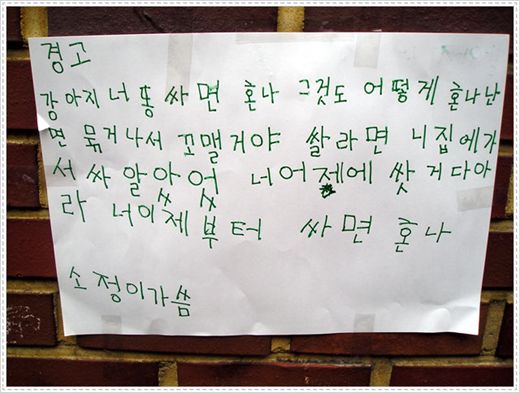 경고
강아지 너 똥 싸면 혼나 그것도 어떻게 혼나냐
면 묶거나서 꼬맬거야 쌀라면 니집에가
서 싸 알았어 너 어제에 쌋 거 다 아
라 너 이제 부터 싸면 혼나
소정이가 씀